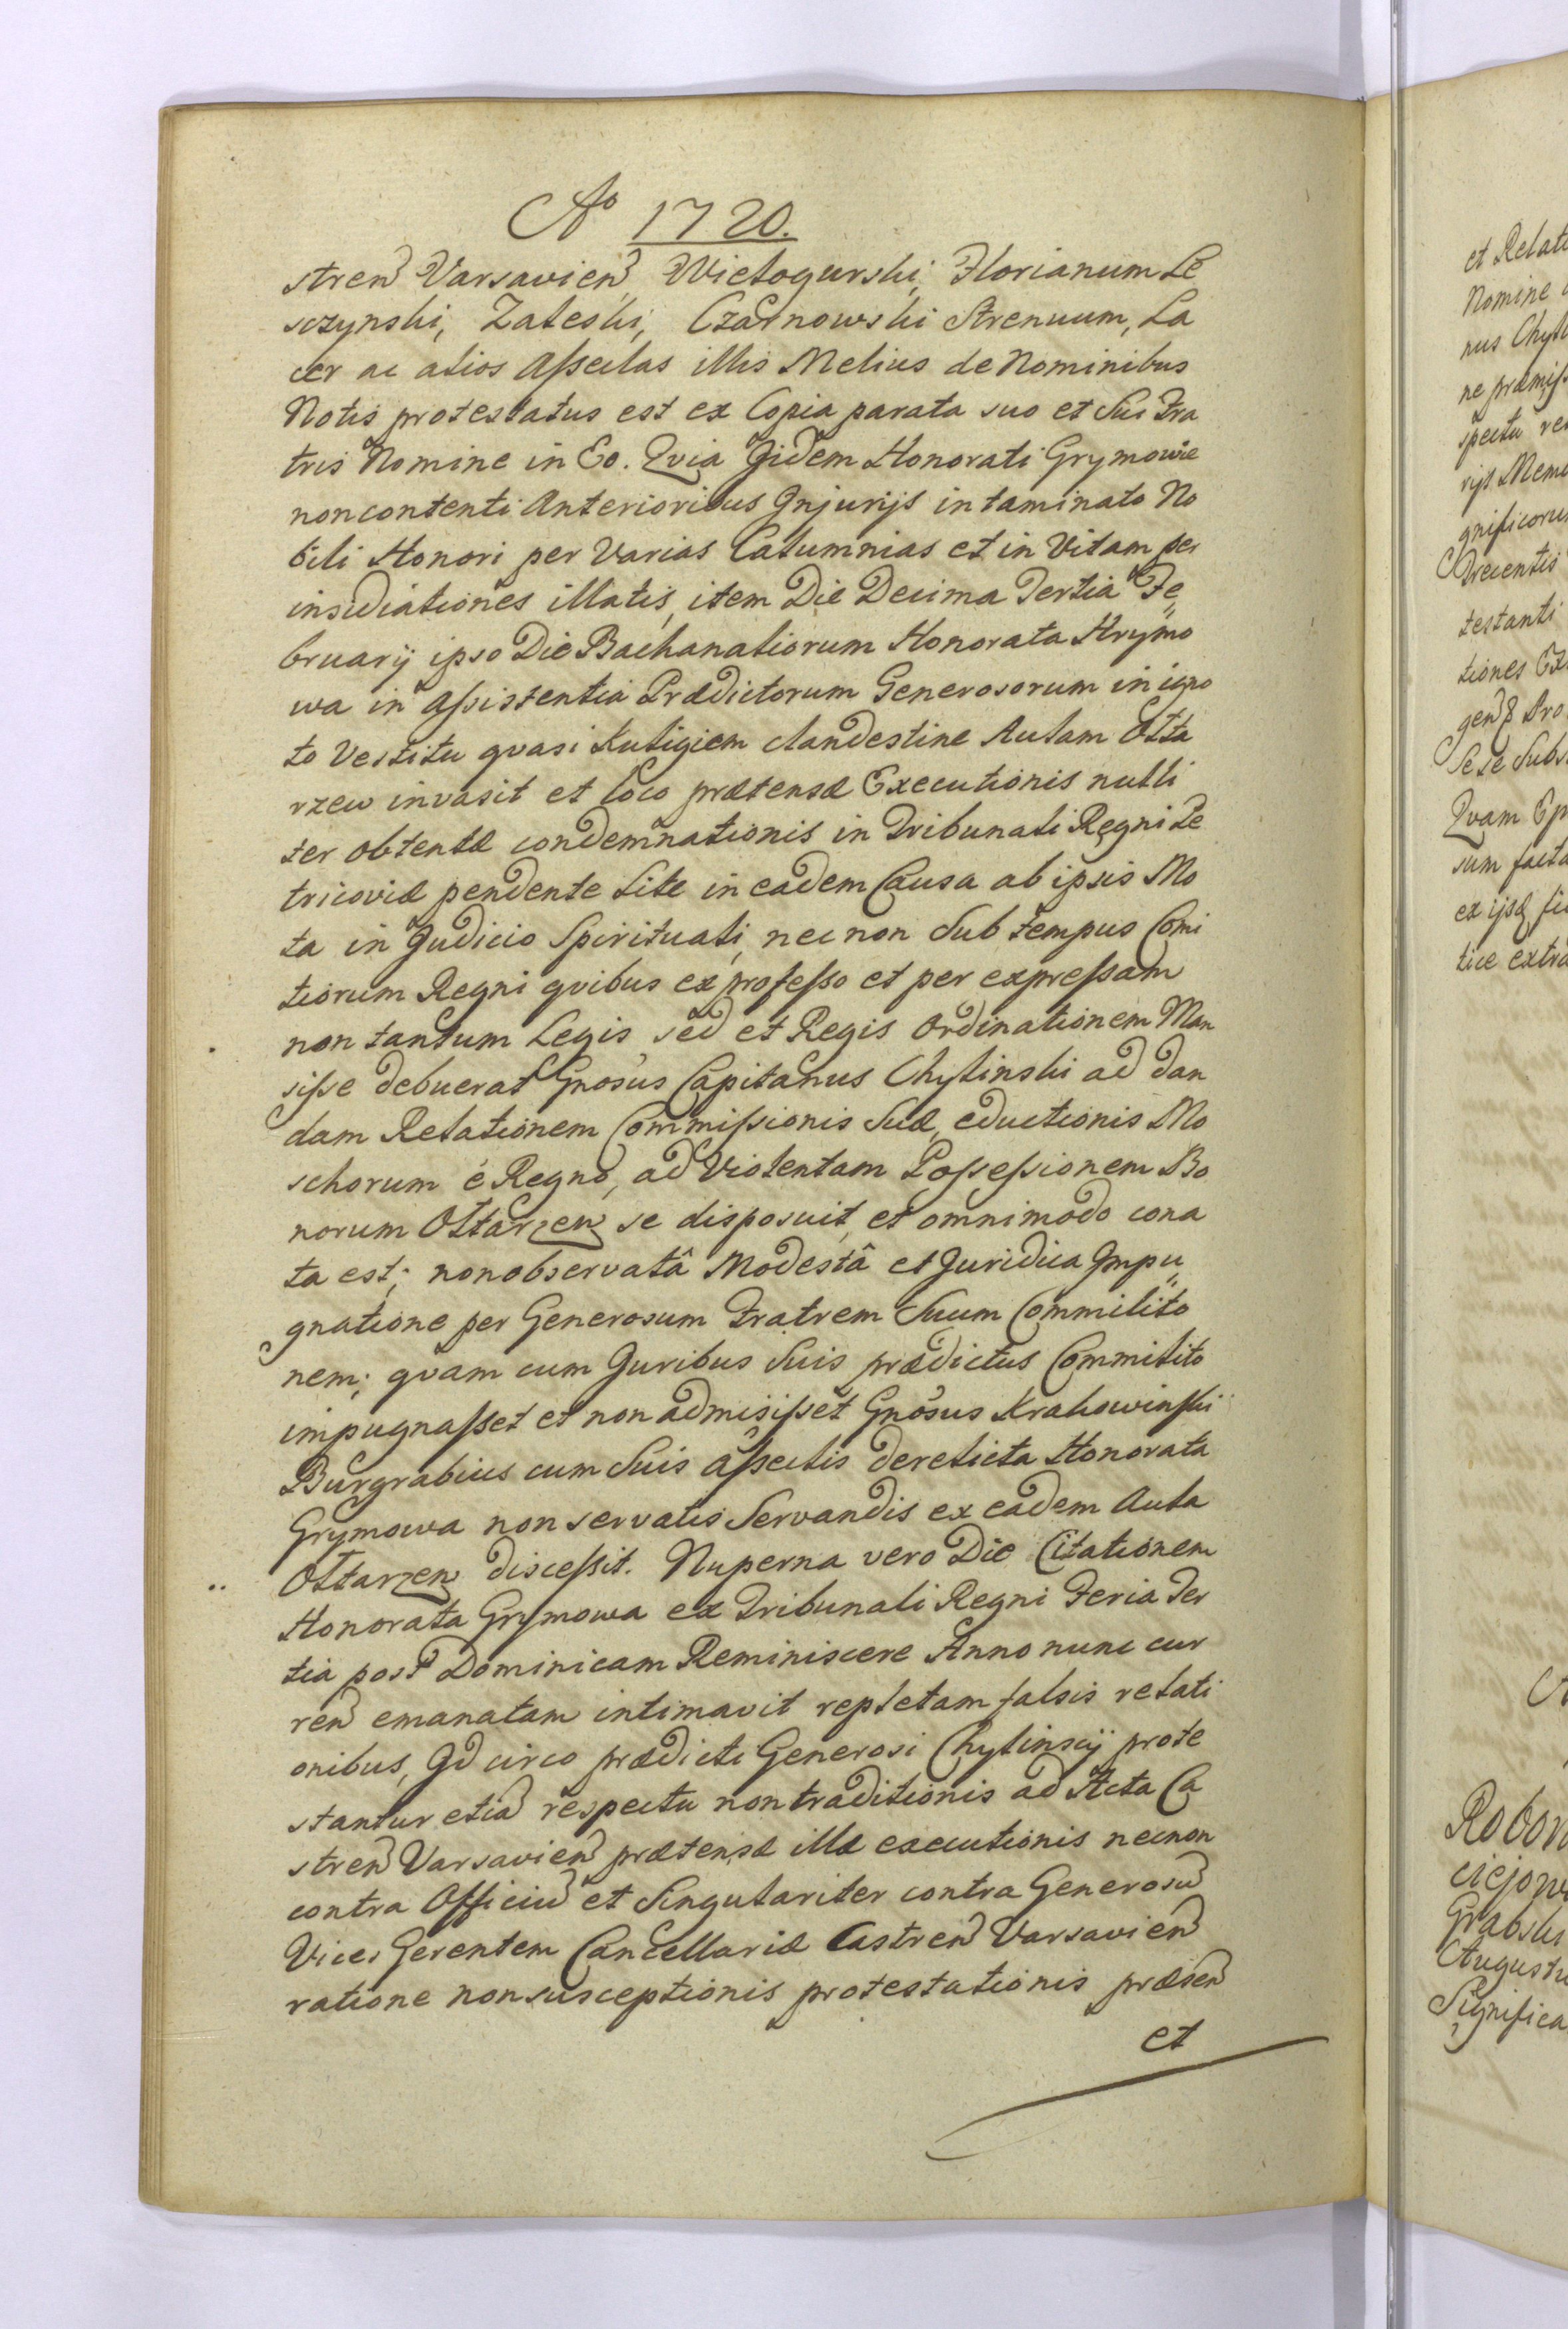 Aº 1720.
stren Varsavien, Wielogurski, Florianum Le
sczynski, Zaleski, Czarnowski Strenuum, La
cer ac alios Aſseclas illis Melius de Nominibus
Notis protestatus est ex Copia parata suo et Sui Fra
tris Nomine in Eo. Qvia Jidem Honorati Grymowie
non contenti Anterioribus Jnjurijs intaminato No
bili Honori per Varias Calumnias et in Vitam per
insidiationes illatis, item Die Decima Tertia Fe„
bruarij ipso Die Bachanaliorum Honorata Krymo
wa in Aſsistentia Prædictorum Generosorum in igno
to Vestitu qvasi Kuligiem clandestine Aulam Ołta
rzew invasit et loco prætensæ Executionis nulli
ter obtentæ condemnationis in Tribunali Regni Pe
tricoviæ pendente Lite in eadem Causa ab ipsis Mo
ta in Judicio Spirituali, nec non Sub tempus Comi
tiorum Regni qvibus ex profeſso et per expreſsam
non tantum Legis sed et Regis Ordinationem Man
siſse debuerat Gnosus Capitanus Chylinski ad dan
dam Relationem Commiſsionis Suæ, eductionis Mo
schorum é Regno, ad Violentam Poſseſsionem Bo
norum Ołtarzew se disposuit, et omnimodo cona
ta est; non observatâ Modestâ et Juridica Jmpu„
gnatione per Generosum Fratrem Suum Commilito
nem; qvam cum Juribus Suis prædictus Commilito
impugnaſset et non admisiſset Gnosus Krakowinſki
Burgrabius cum Suis Aſseclis derelicta Honorata
Grymowa non servatis Servandis ex eadem Aula
Ołtarzew disceſsit. Nuperna vero Die Citationem
Honorata Grymowa ex Tribunali Regni Feria Ter
tia post Dominicam Reminiscere Anno nunc cur
ren emanatam intimavit repletam falsis relati
onibus, Jd circo prædicti Generosi Chylinscij prote
stantur etia respectu non traditionis ad Acta Ca
stren Varsavien prætensæ illæ executionis nec non
contra Officiu et Singulariter contra Generosu
Vices Gerentem Cancellariæ Castren Varsavien
ratione non susceptionis protestationis præsen
et
et Relati
Nomine
nus Chyli
ne præmiſs
spectu re
rijs Memo
gnificoru
Trecentis
testanti
tiones Ex
Sese Subs
Qvam
sum facta
tice extra
Robor
Grabski
Augustu
Significa